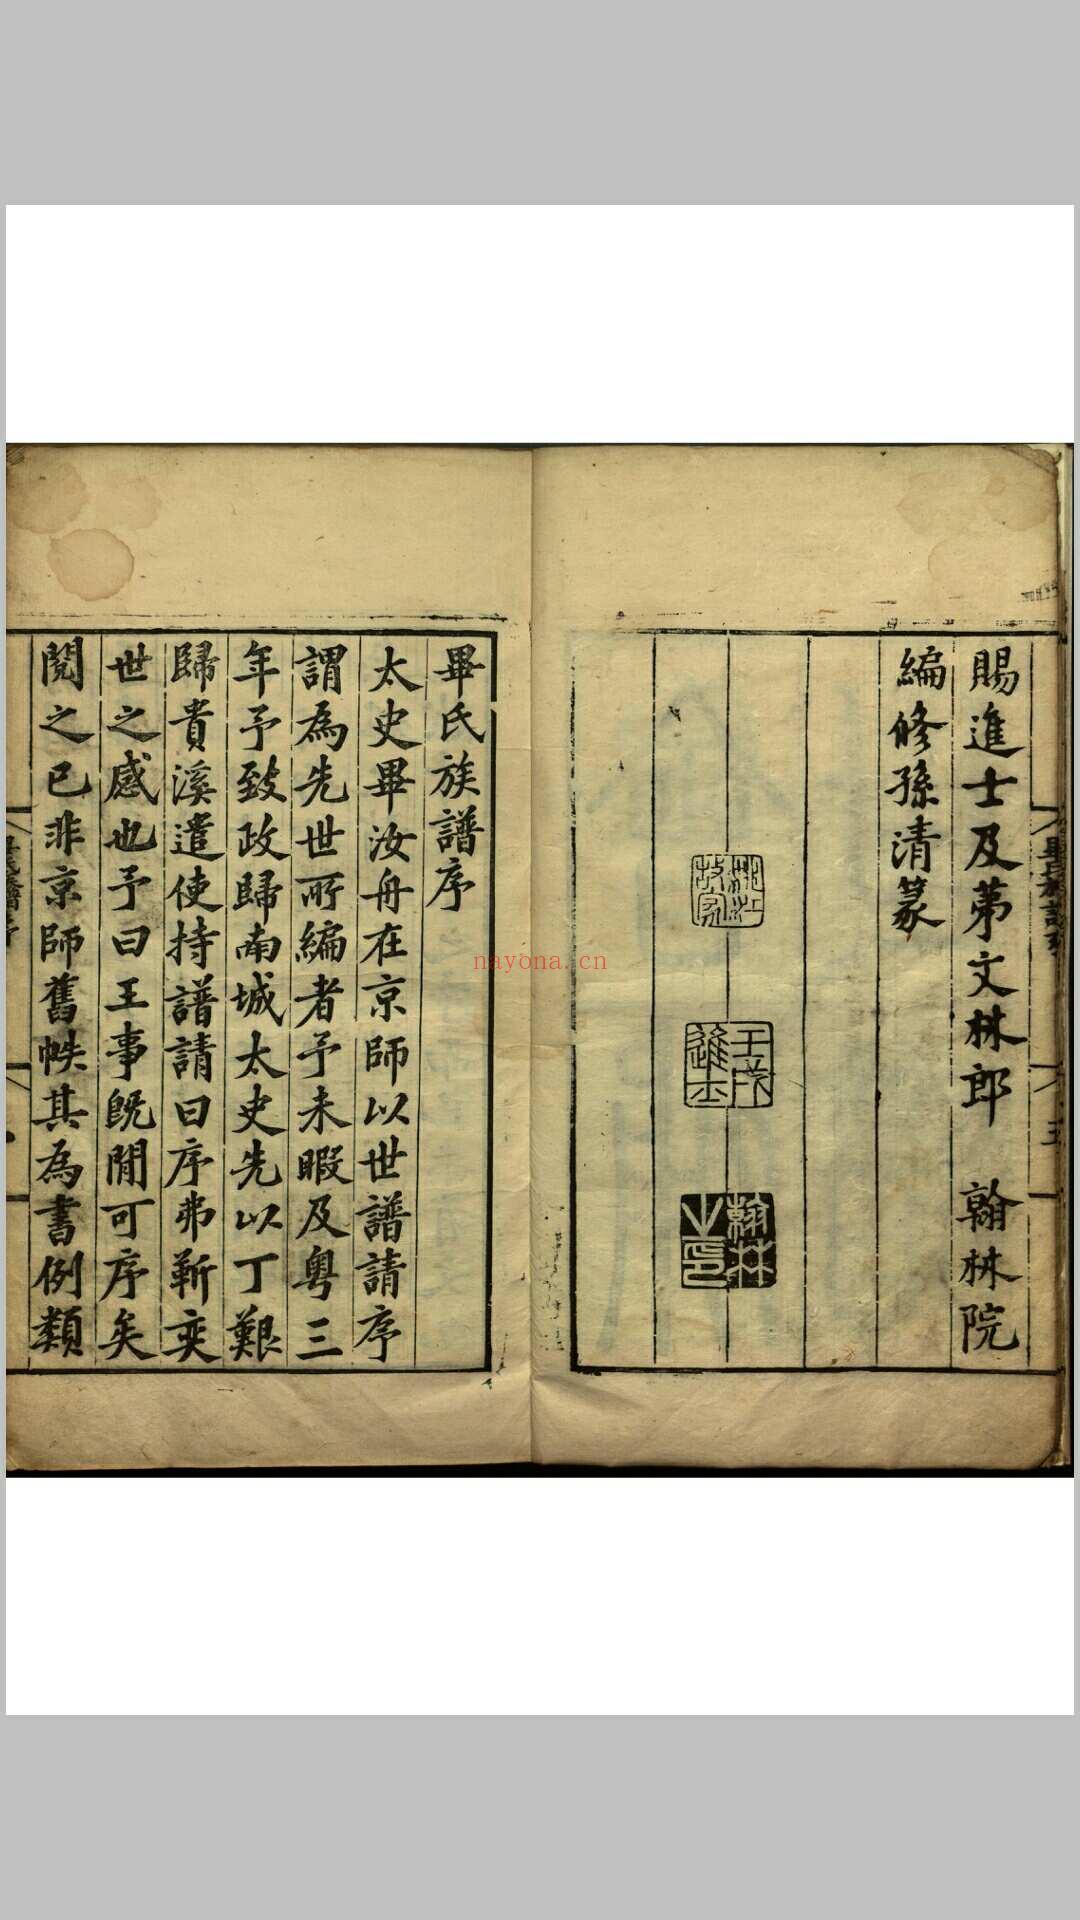 賜進士及苐文林郎　翰林院
編修孫清篆
壬戌進士
翰林之印
畢氏族譜序
太史畢汝舟在京師以世譜請序
謂為先世所編者予未暇及粵三
年予致政歸南城太史先以丁艱
歸貴溪遣使持譜請曰序弗靳奕
世之感也予曰王事旣閒可序矣
閱之已非京師舊帙其為書例類
nayona.cn